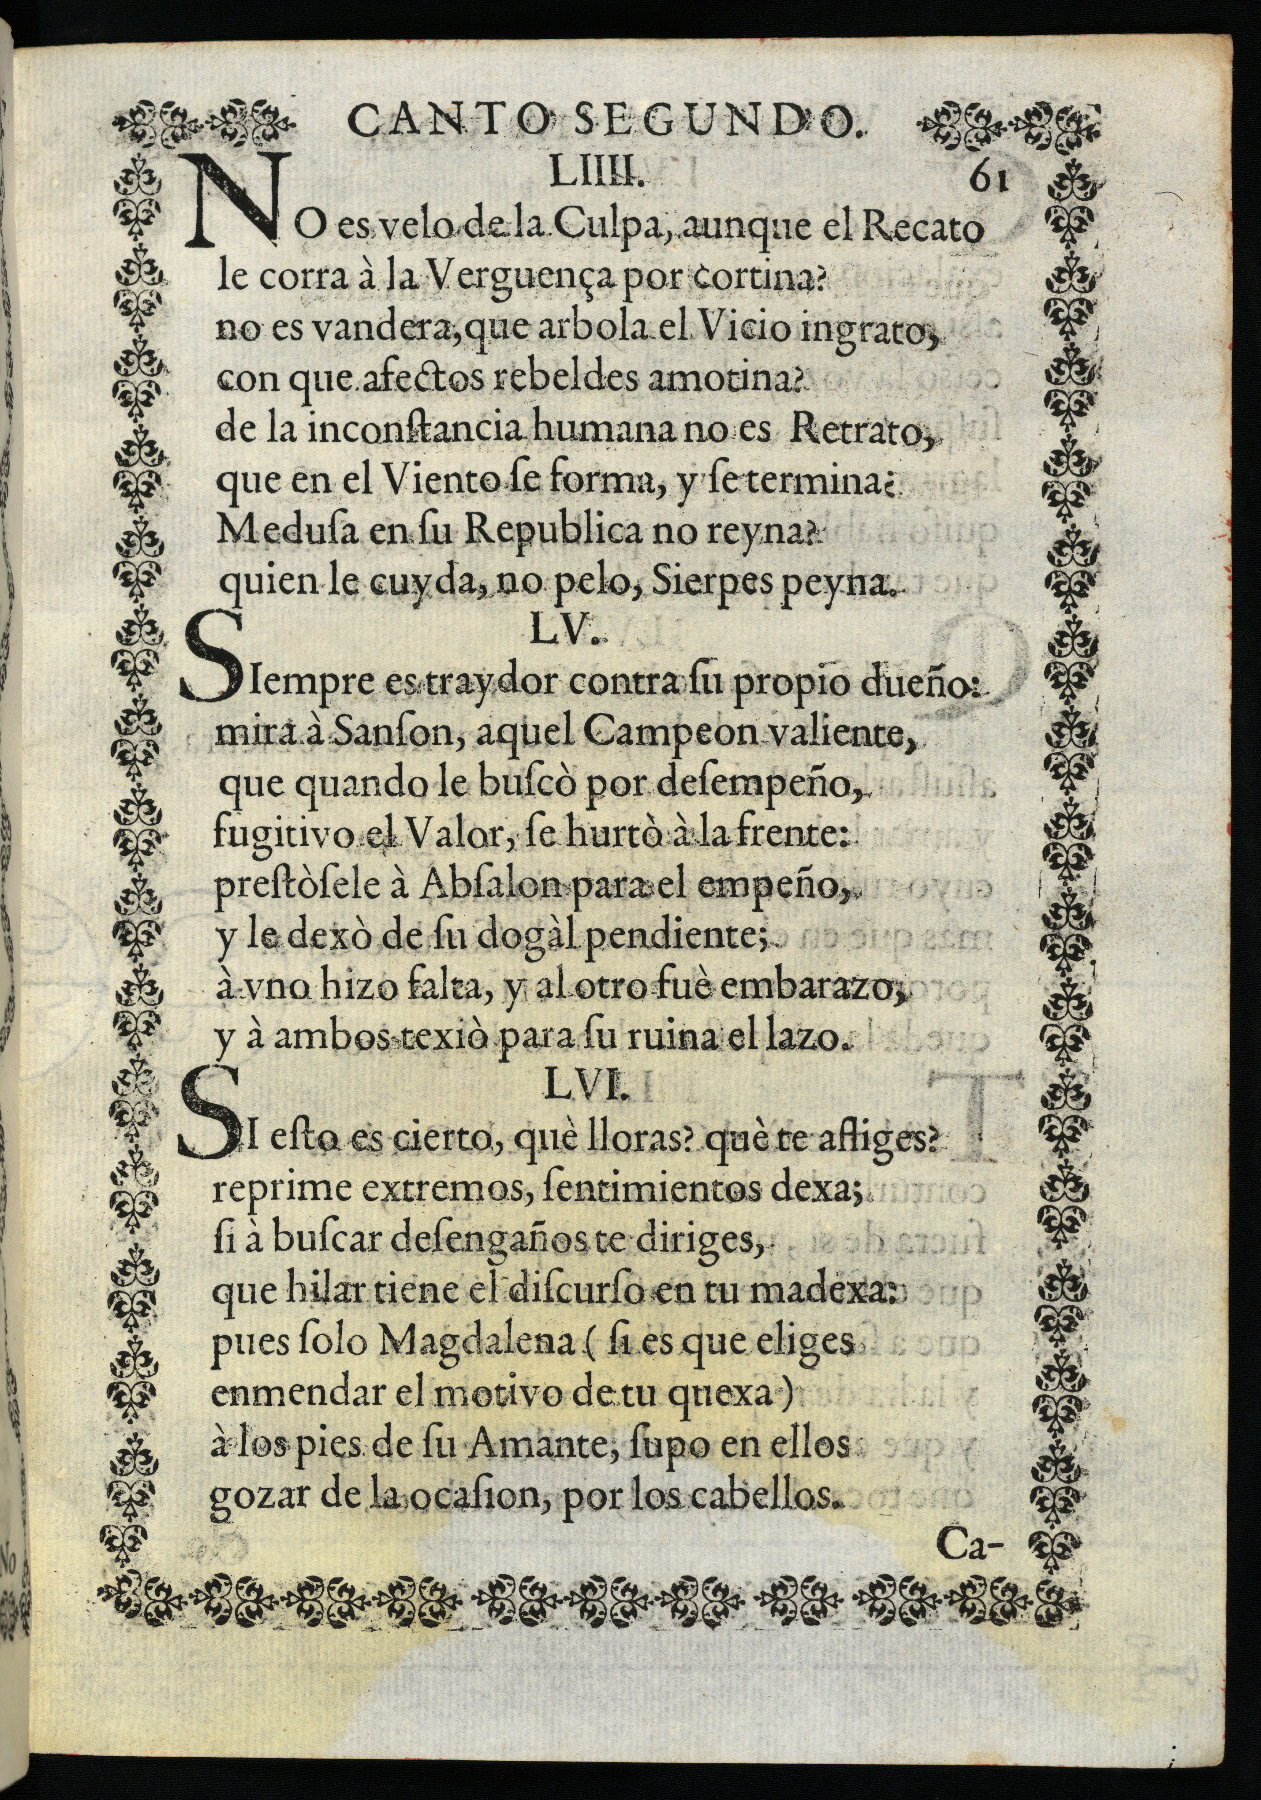 CANTO SEGUNDO.
LIIII. 61
NO es velo de la Culpa, aunque el Recato
le corra à la Verguença por cortina?
no es vandera, que arbola el Vicio ingrato,
con que afectos rebeldes amotina?
de la inconſtancia humana no es Retrato,
que en el Viento ſe forma, y ſe termina?
Meduſa en ſu Republica no reyna?
quien le cuyda, no pelo, Sierpes peyna.
LV.
SIempre es traydor contra ſu propio dueño:
mira à Sanſon, aquel Campeon valiente,
que quando le buſcò por deſempeño,
fugitivo el Valor, ſe hurtò à la frente:
preſtòſele à Abſalon para el empeño,
y le dexò de ſu dogàl pendiente;
à vno hizo falta, y al otro fuè embarazo,
y à ambos texiò para ſu ruina el lazo.
LVI.
SI eſto es cierto, què lloras? què te afliges?
reprime extremos, ſentimientos dexa;
ſi à buſcar deſengaños te diriges,
que hilar tiene el diſcurſo en tu madexa:
pues ſolo Magdalena ( ſi es que eliges
enmendar el motivo de tu quexa )
à los pies de ſu Amante, ſupo en ellos
gozar de la ocaſion, por los cabellos.
Ca-